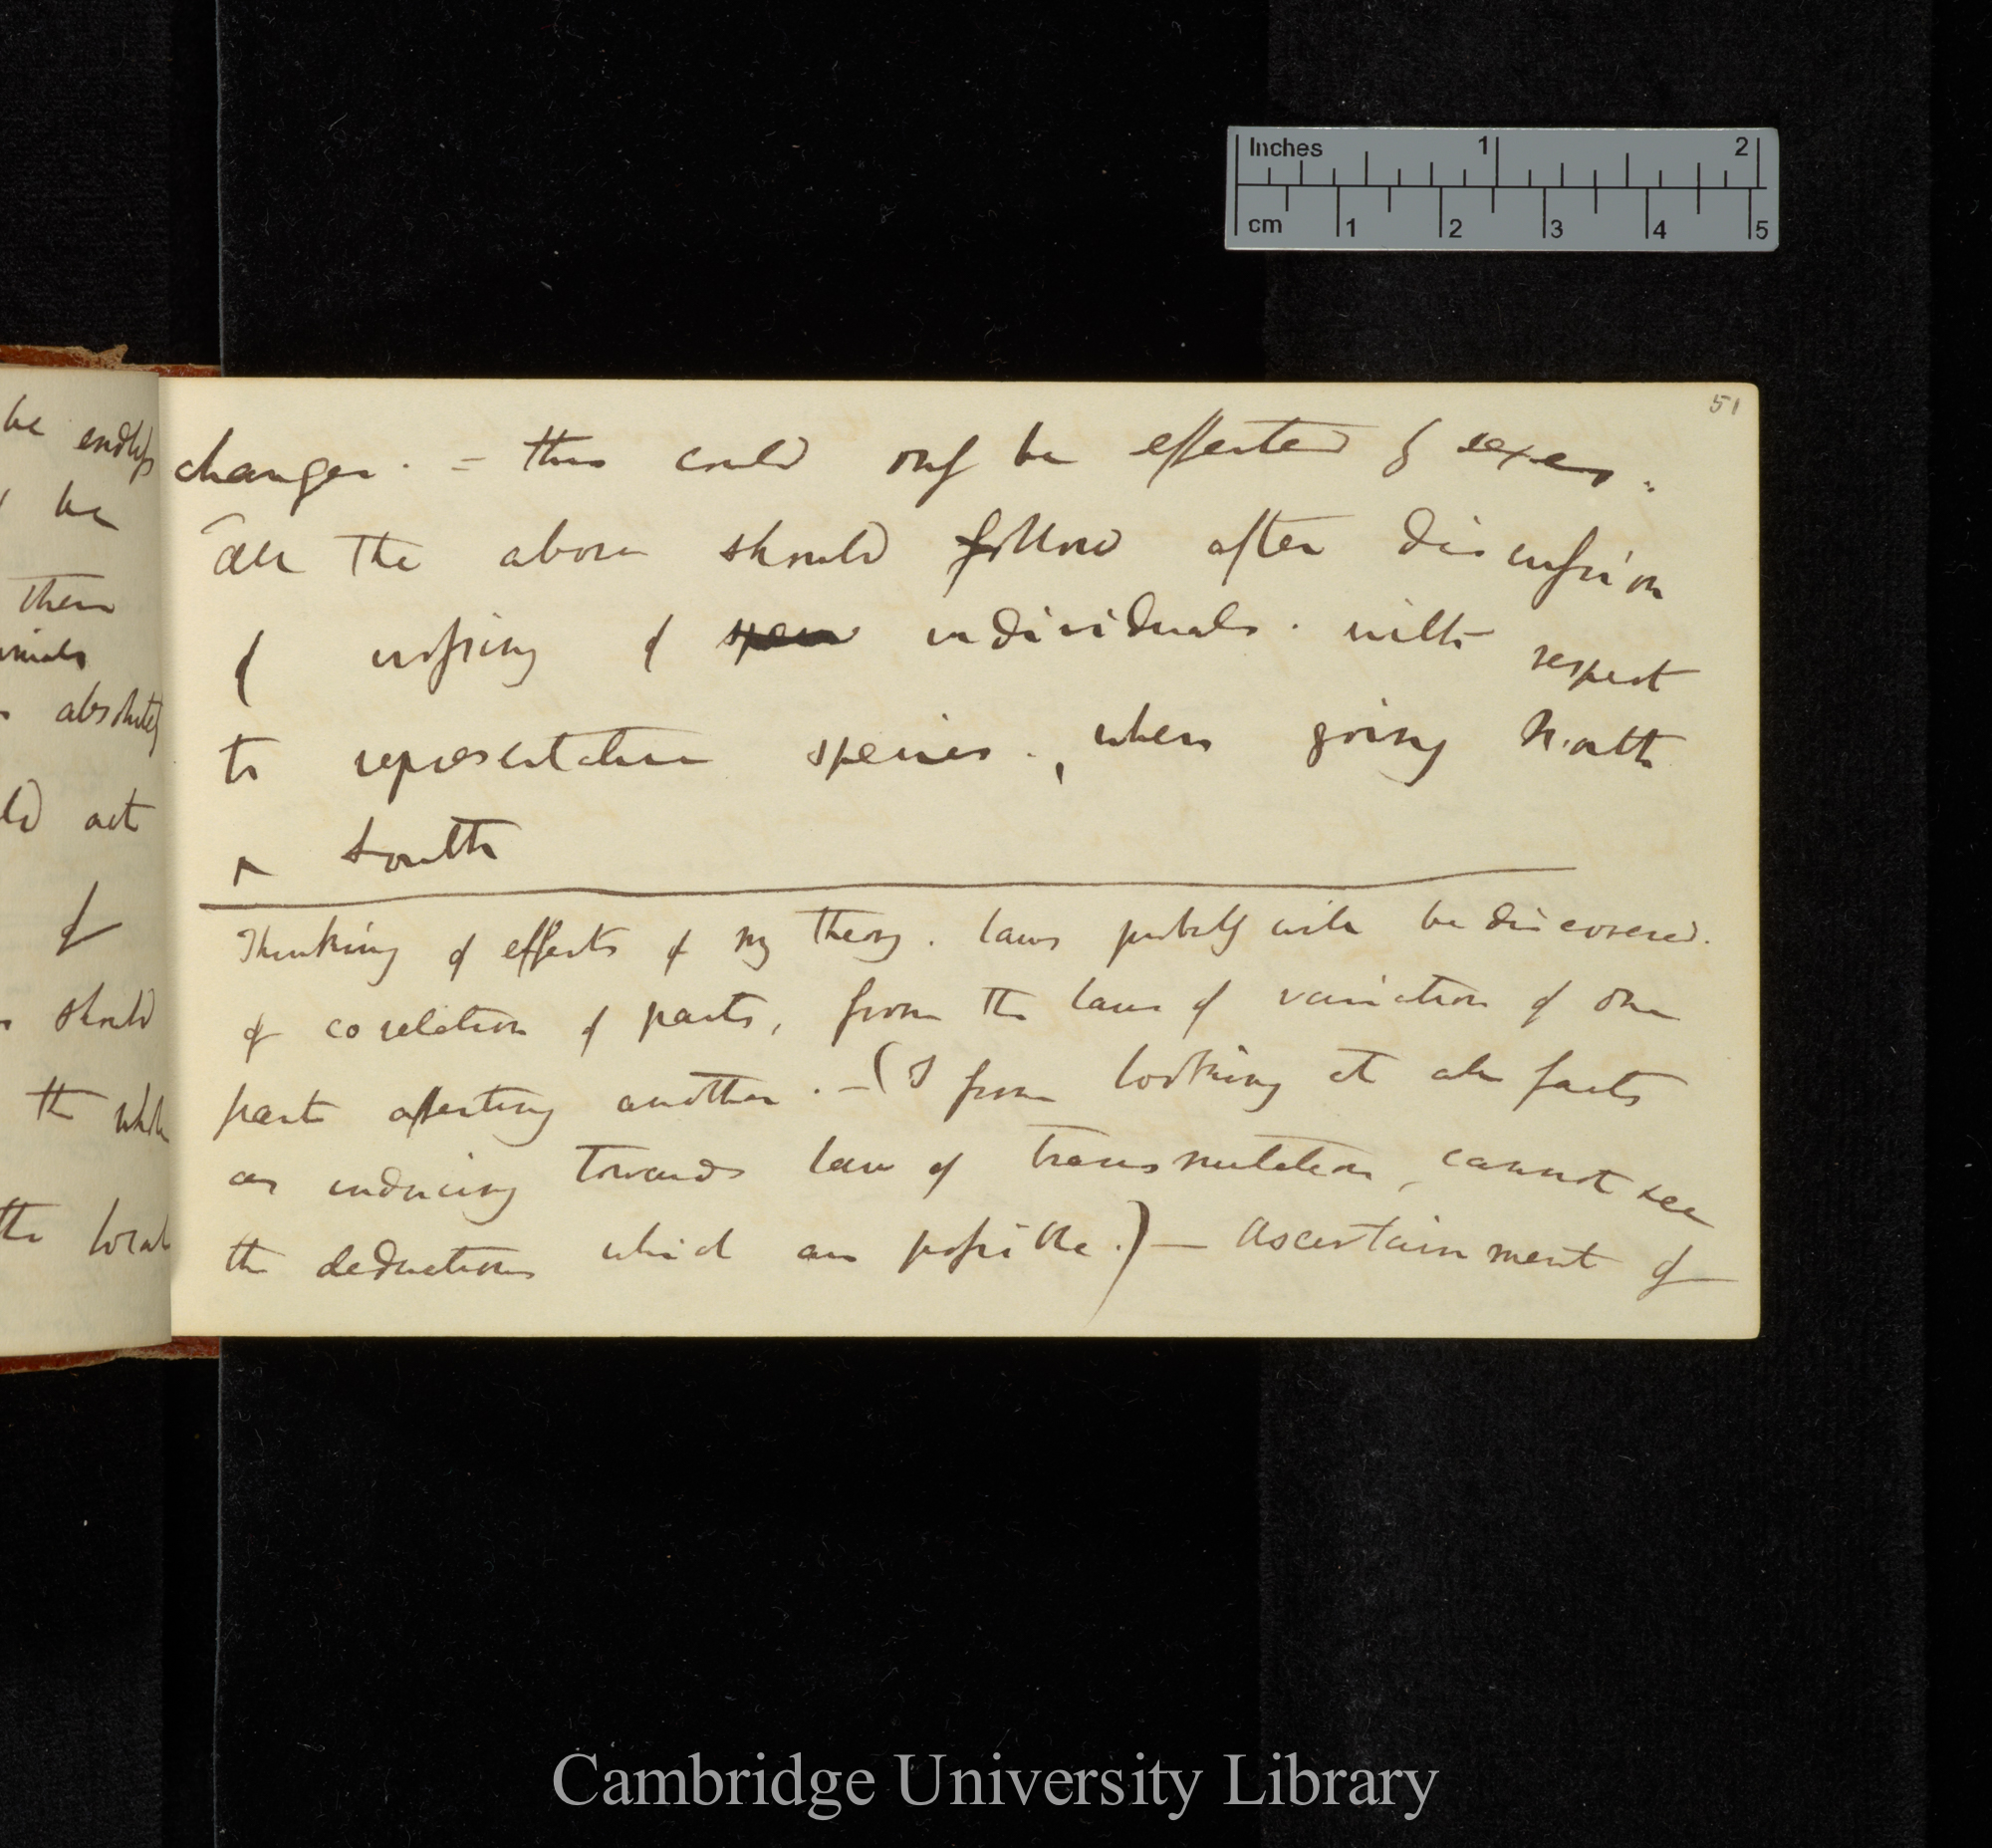 Inches 1 2
cm 1 2 3 4 5
51
be endless
be
them
animals
absolutely
act
of
should
the whole
the local
changes. = this could only be effected by sexes.
All the above should follow after discussion
of crossing of individuals. with respect
to representative species., when going North
& South
Thinking of effects of my theory. laws probably will be discovered.
of corelation of parts, from the laws of variation of one
part affecting another. — (I from looking at all facts
as inducing towards law of transmutation, cannot see
the deductions which are possible.) — Ascertainment of
Cambridge University Library